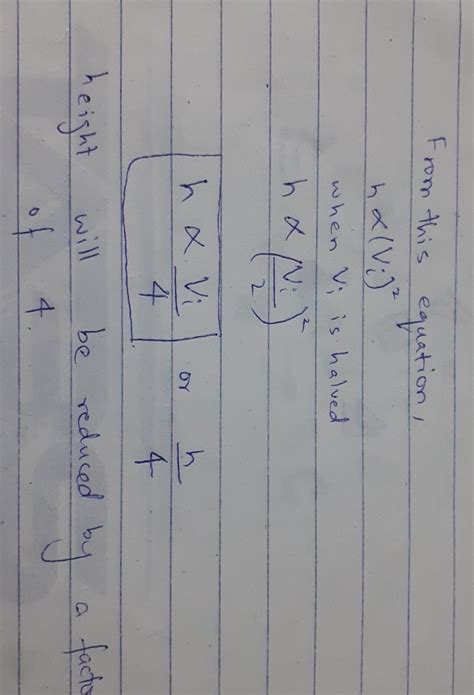 From this equation,
h ∝ (Vi)²
when Vi is halved
h ∝ (Vi/2)²
h ∝ Vi/4 or h/4
height will be reduced by a facto
of 4.